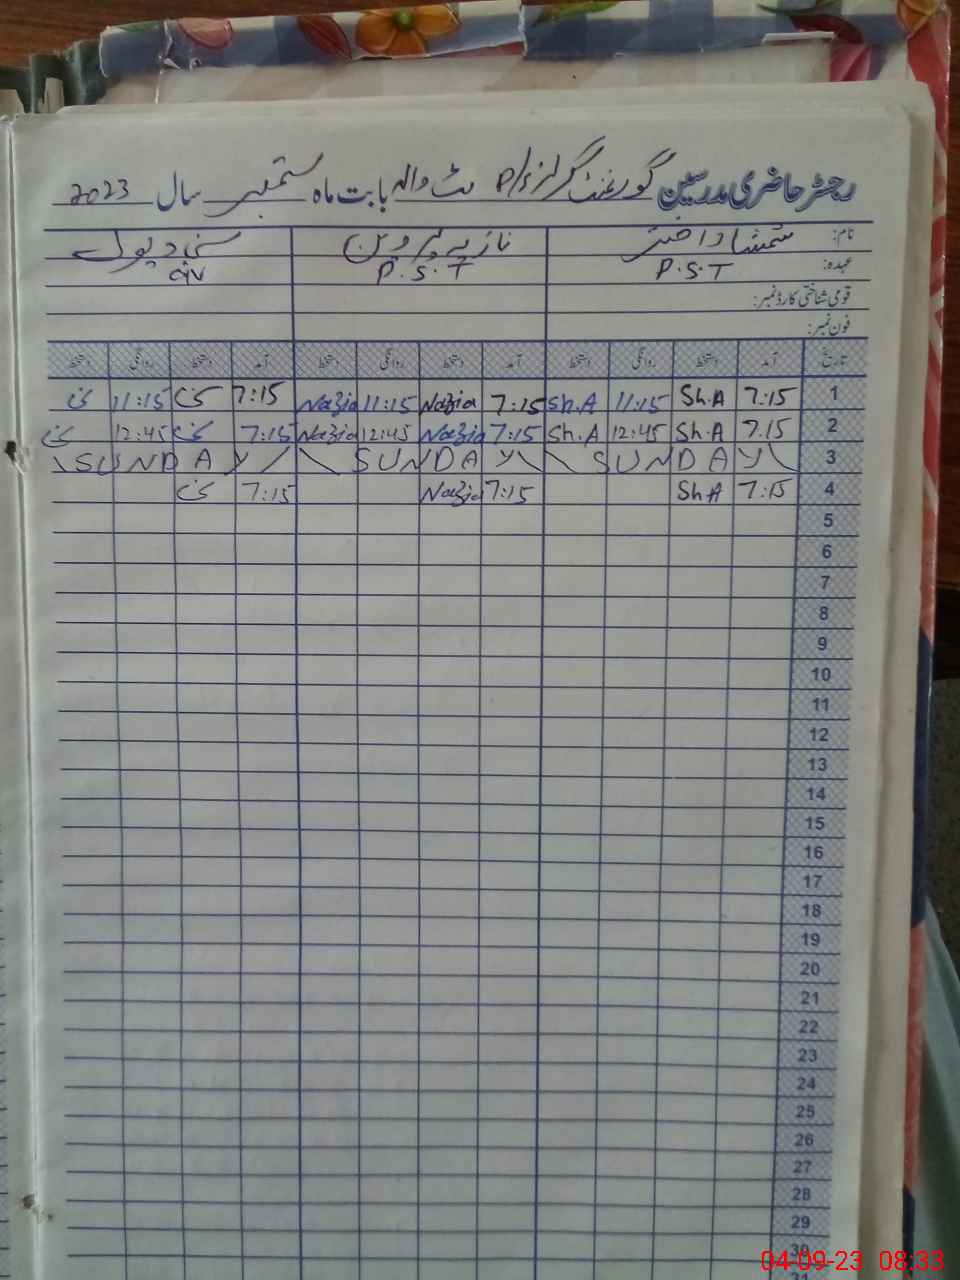 رجسٹر حاضری مدرسین گورنمنٹ گرلز P/S بٹ والہ بابت ماہ ستمبر سال 2023
نام: شمشاد اختر نازیہ پروین
عہدہ: P.S.T P.S.T
قومی شناختی کارڈ نمبر:
فون نمبر:
تاریخ آمد دستخط روانگی دستخط آمد دستخط روانگی دستخط آمد دستخط روانگی دستخط
1 7:15 Sh.A 11:15 Sh.A 7:15 Nazia 11:15 Nazia 7:15 11:15
2 7:15 Sh.A 12:45 Sh.A 7:15 Nazia 12:45 Nazia 7:15 12:45
3 SUNDAY SUNDAY SUNDAY
4 7:15 Sh.A 7:15 Nazia 7:15
5
6
7
8
9
10
11
12
13
14
15
16
17
18
19
20
21
22
23
24
25
26
27
28
29
30
31
04-09-23 08:33